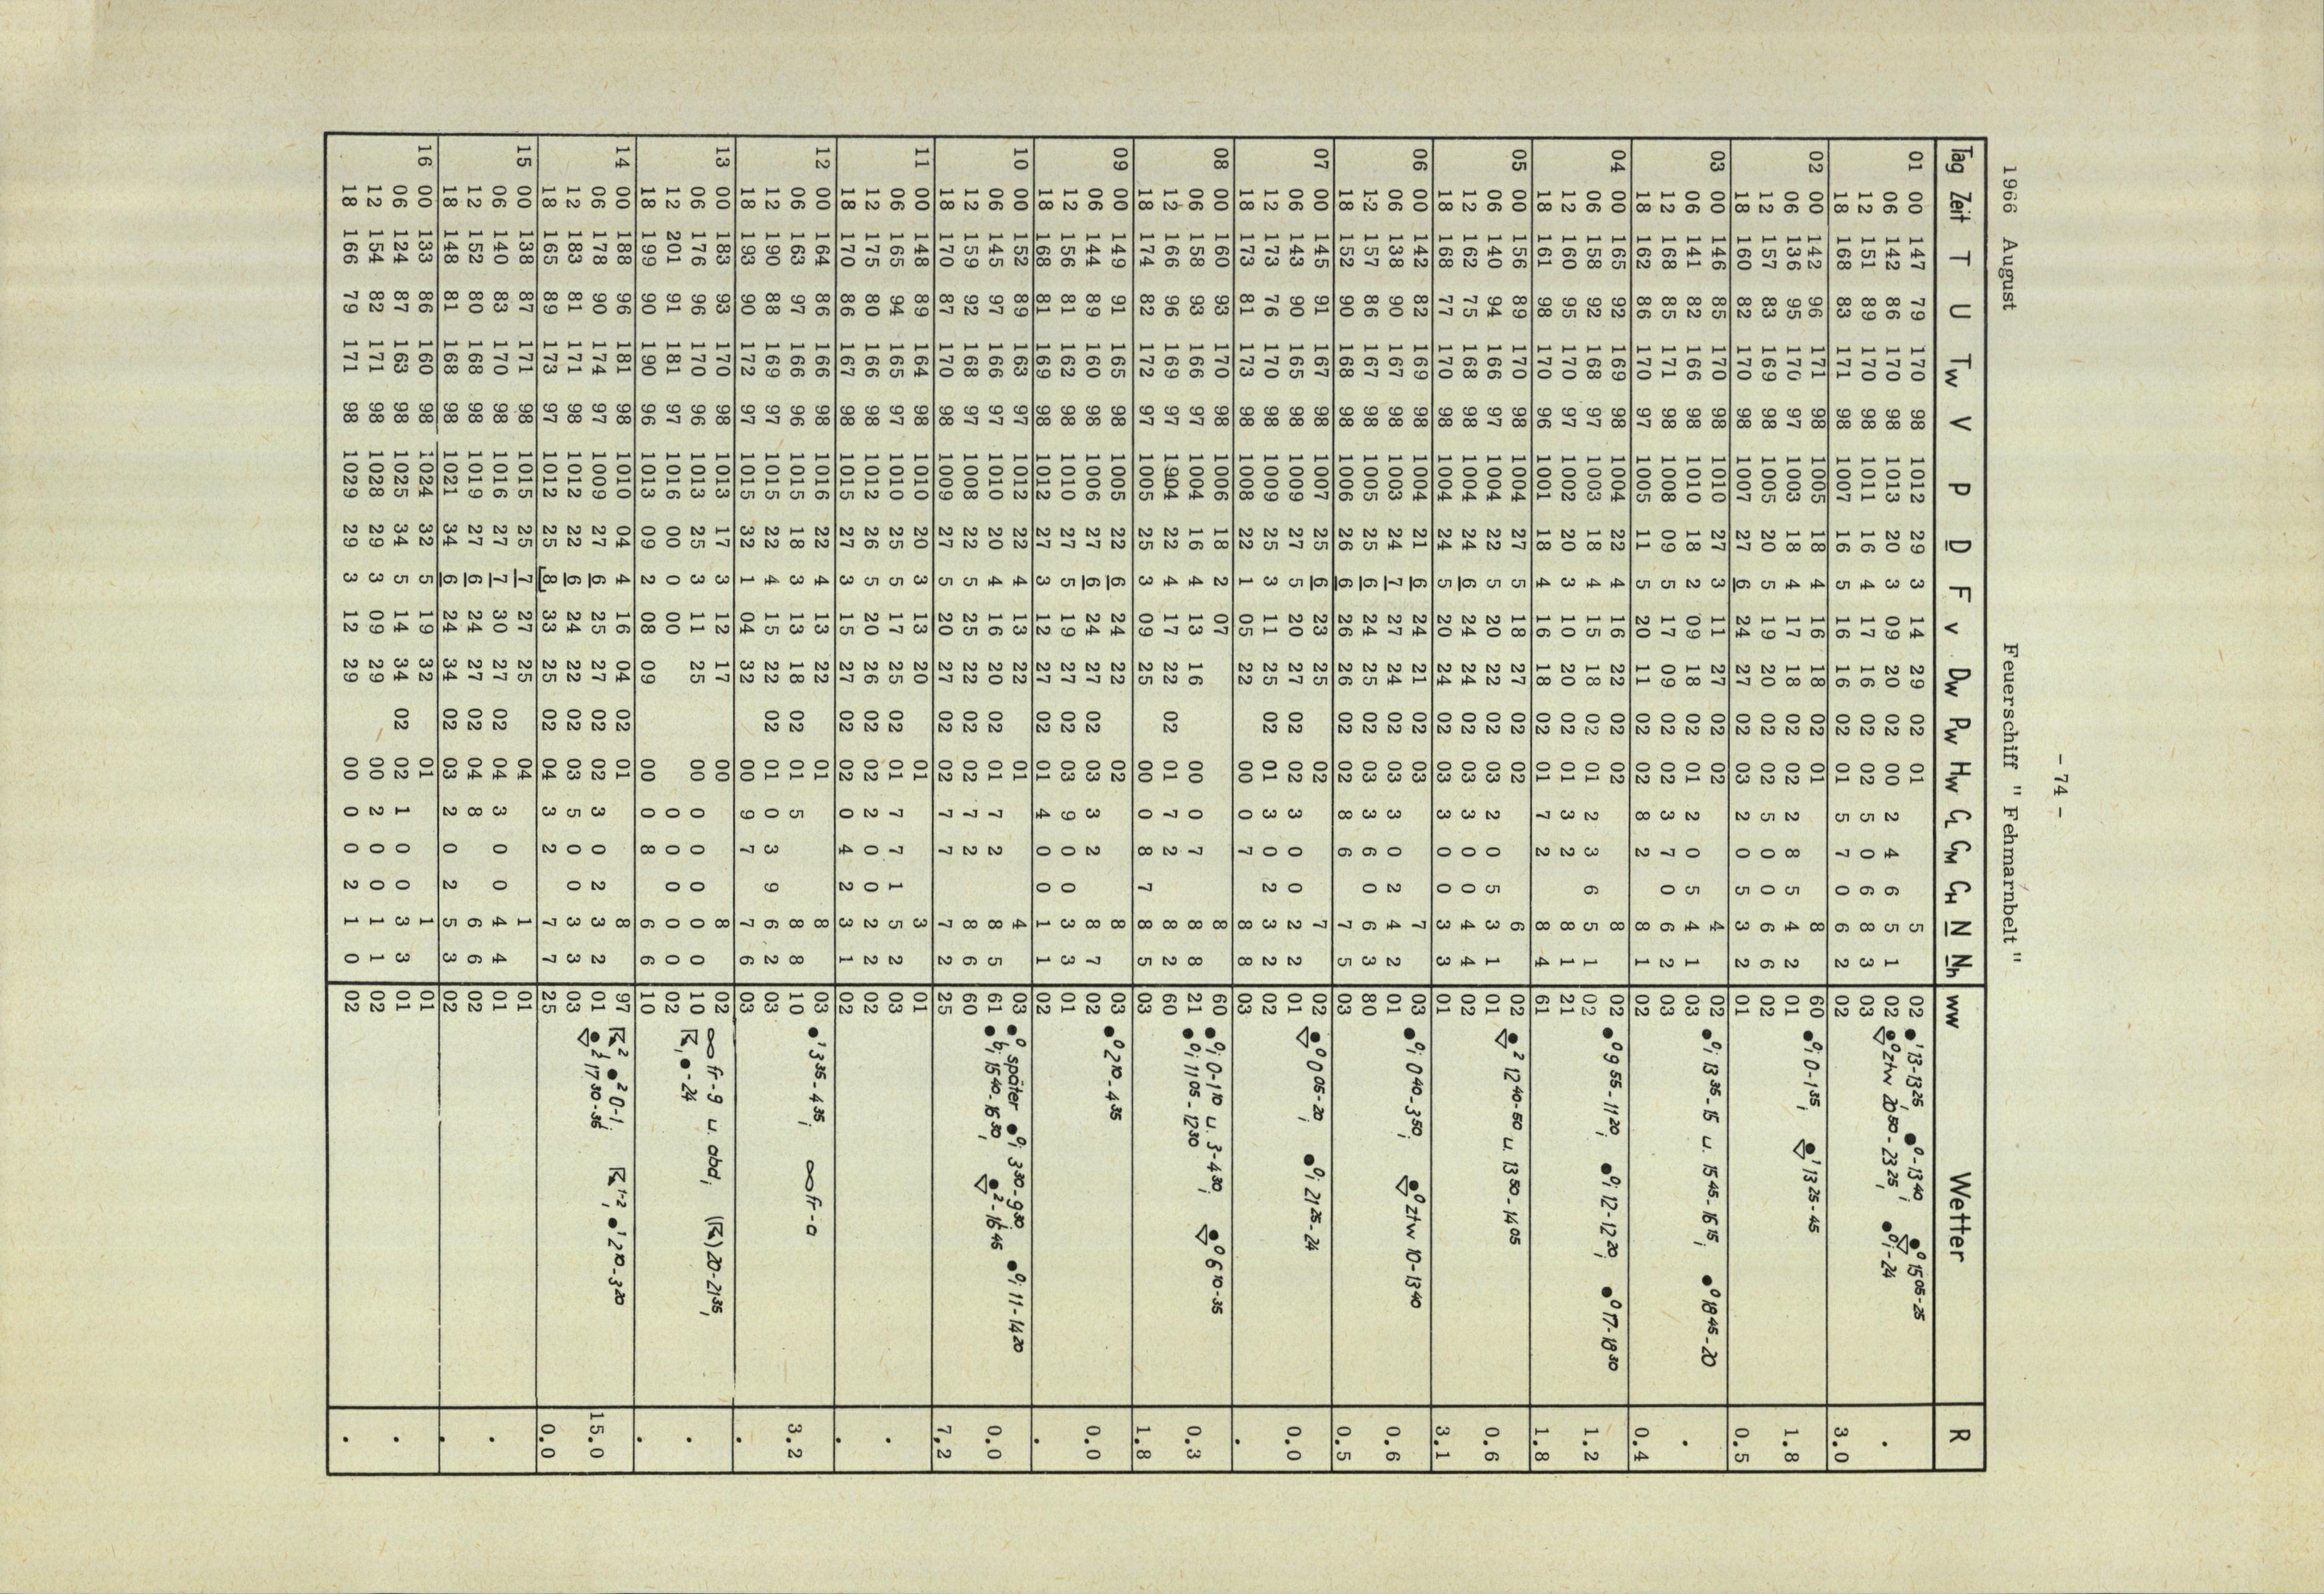 - 74 -
1966 August Feuerschiff " Fehmarnbelt "
Tag Zeit T U Tw V P D F v Dw Pw Hw CL CM CH N Nh ww Wetter R
01 00 147 79 170 98 1012 29 3 14 29 02 01 5 02 ●¹ 13-13²⁵, ●⁰-13⁴⁰; ●⁰ 15⁰⁵-25
06 142 86 170 98 1013 20 3 09 20 02 00 2 4 6 5 1 02 ●⁰ ztw 20⁵⁰-23²⁵, ●⁰-24 .
12 151 89 170 98 1011 16 4 17 16 02 02 5 0 6 8 3 03
18 168 83 171 98 1007 16 5 16 16 02 01 5 7 0 6 2 02 3.0
02 00 142 96 171 98 1005 18 4 16 18 02 01 8 60 ●⁰, 0-1³⁵, ●¹ 13²⁵-45
06 136 95 170 97 1003 18 4 17 18 02 02 2 8 5 4 2 01 1.8
12 157 83 169 98 1005 20 5 19 20 02 02 5 0 0 6 6 02
18 160 82 170 98 1007 27 6 24 27 02 03 2 0 5 3 2 01 0.5
03 00 146 85 170 98 1010 27 3 11 27 02 02 4 02 ●⁰, 13³⁵-15 u. 15⁴⁵-16¹⁵, ●⁰ 18⁴⁵-20
06 141 82 166 98 1010 18 2 09 18 02 01 2 0 5 4 1 03 .
12 168 85 171 98 1008 09 5 17 09 02 02 3 7 0 6 2 03
18 162 86 170 97 1005 11 5 20 11 02 02 8 2 8 1 02 0.4
04 00 165 92 169 98 1004 22 4 16 22 02 02 8 02 ●⁰ 9⁵⁵-11²⁰, ●⁰, 12-12²⁰, ●⁰ 17-18³⁰
06 158 92 168 97 1003 18 4 15 18 02 01 2 3 6 5 1 02 1.2
12 160 95 170 97 1002 20 3 10 20 02 01 3 2 8 1 21
18 161 98 170 96 1001 18 4 16 18 02 01 7 2 8 4 61 1.8
05 00 156 89 170 98 1004 27 5 18 27 02 02 6 02 ●² 12⁴⁰-50 u 13⁵⁰-14⁰⁵
06 140 94 166 97 1004 22 5 20 22 02 03 2 0 5 3 1 01 0.6
12 162 75 168 98 1004 24 6 24 24 02 03 3 0 0 4 4 02
18 168 77 170 98 1004 24 5 20 24 02 03 3 0 0 3 3 01 3.1
06 00 142 82 169 98 1004 21 6 24 21 02 03 7 03 ●⁰, 0⁴⁰-3⁵⁰, ●⁰ ztw 10-13⁴⁰
06 138 90 167 98 1003 24 7 27 24 02 03 3 0 2 4 2 01 0.6
12 157 86 167 98 1005 25 6 24 25 02 03 3 6 0 6 3 80
18 152 90 168 98 1006 26 6 26 26 02 02 8 6 7 5 03 0.5
07 00 145 91 167 98 1007 25 6 23 25 02 7 02 ●⁰ 0⁰⁵-20, ●⁰, 21²⁵-24
06 143 90 165 98 1009 27 5 20 27 02 02 3 0 0 2 2 01 0.0
12 173 76 170 98 1009 25 3 11 25 02 01 3 0 2 3 2 02
18 173 81 173 98 1008 22 1 05 22 00 0 7 8 8 03 .
08 00 160 93 170 98 1006 18 2 07 8 60 ●⁰, 0-1¹⁰ u. 3-4³⁰, ●⁰ 6¹⁰-35
06 158 93 166 97 1004 16 4 13 16 00 0 7 8 8 21 ●⁰, 11⁰⁵-12³⁰ 0.3
12 166 96 169 97 1004 22 4 17 22 02 01 7 2 8 2 60
18 174 82 172 97 1005 25 3 09 25 00 0 8 7 8 5 03 1.8
09 00 149 91 165 98 1005 22 6 24 22 02 8 03 ●⁰ 2¹⁰-4³⁵
06 144 89 160 98 1006 27 6 24 27 02 03 3 2 8 7 02 0.0
12 156 81 162 98 1010 27 5 19 27 02 03 9 0 0 3 3 01
18 168 81 169 98 1012 27 3 12 27 02 01 4 0 0 1 1 02 .
10 00 152 89 163 97 1012 22 4 13 22 01 4 03 ●⁰ später ●⁰, 3³⁰-9³⁰, ●⁰, 11-14²⁰
06 145 97 166 97 1010 20 4 16 20 02 01 7 2 8 5 61 15⁴⁰-16³⁰, ●²-16⁴⁵ 0.0
12 159 92 168 97 1008 22 5 25 22 02 02 7 2 8 6 60
18 170 87 170 98 1009 27 5 20 27 02 02 7 7 7 2 25 7.2
11 00 148 89 164 98 1010 20 3 13 20 01 3 01
06 165 94 165 97 1010 25 5 17 25 02 01 7 7 1 5 2 03 .
12 175 80 166 98 1012 26 5 20 26 02 02 2 0 0 2 2 02
18 170 86 167 98 1015 27 3 15 27 02 02 0 4 2 3 1 02 .
12 00 164 86 166 98 1016 22 4 13 22 01 8 03 ●¹ 3³⁵-4³⁵, ∞ fr-0
06 163 97 166 96 1015 18 3 13 18 02 01 5 8 8 10 3.2
12 190 88 169 97 1015 22 4 15 22 02 01 0 3 9 6 2 03
18 193 90 172 97 1015 32 1 04 32 00 9 7 7 6 03 .
13 00 183 93 170 98 1013 17 3 12 17 00 8 02 ∞ fr-9 u. abd, (☈) 20-21³⁵,
06 176 96 170 96 1013 25 3 11 25 00 0 0 0 0 0 10 ☈, ●-24 .
12 201 91 181 97 1016 00 0 00 0 0 0 0 0 02
18 199 90 190 96 1013 09 2 08 09 00 0 8 6 6 10 .
14 00 188 96 181 98 1010 04 4 16 04 02 01 8 97 ☈² ●² 0-1, ☈¹⁻², ●¹ 2¹⁰-3²⁰
06 178 90 174 97 1009 27 6 25 27 02 02 3 0 2 3 2 01 ●² 17³⁰-35 15.0
12 183 81 171 98 1012 22 6 24 22 02 03 5 0 0 3 3 03
18 165 89 173 97 1012 25 8 33 25 02 04 3 2 7 7 25 0.0
15 00 138 87 171 98 1015 25 7 27 25 04 1 01
06 140 83 170 98 1016 27 7 30 27 02 04 3 0 0 4 4 01 .
12 152 80 168 98 1019 27 6 24 27 02 04 8 6 6 02
18 148 81 168 98 1021 34 6 24 34 02 03 2 0 2 5 3 02 .
16 00 133 86 160 98 1024 32 5 19 32 01 1 01
06 124 87 163 98 1025 34 5 14 34 02 02 1 0 0 3 3 01 .
12 154 82 171 98 1028 29 3 09 29 00 2 0 0 1 1 02
18 166 79 171 98 1029 29 3 12 29 00 0 0 2 1 0 02 .